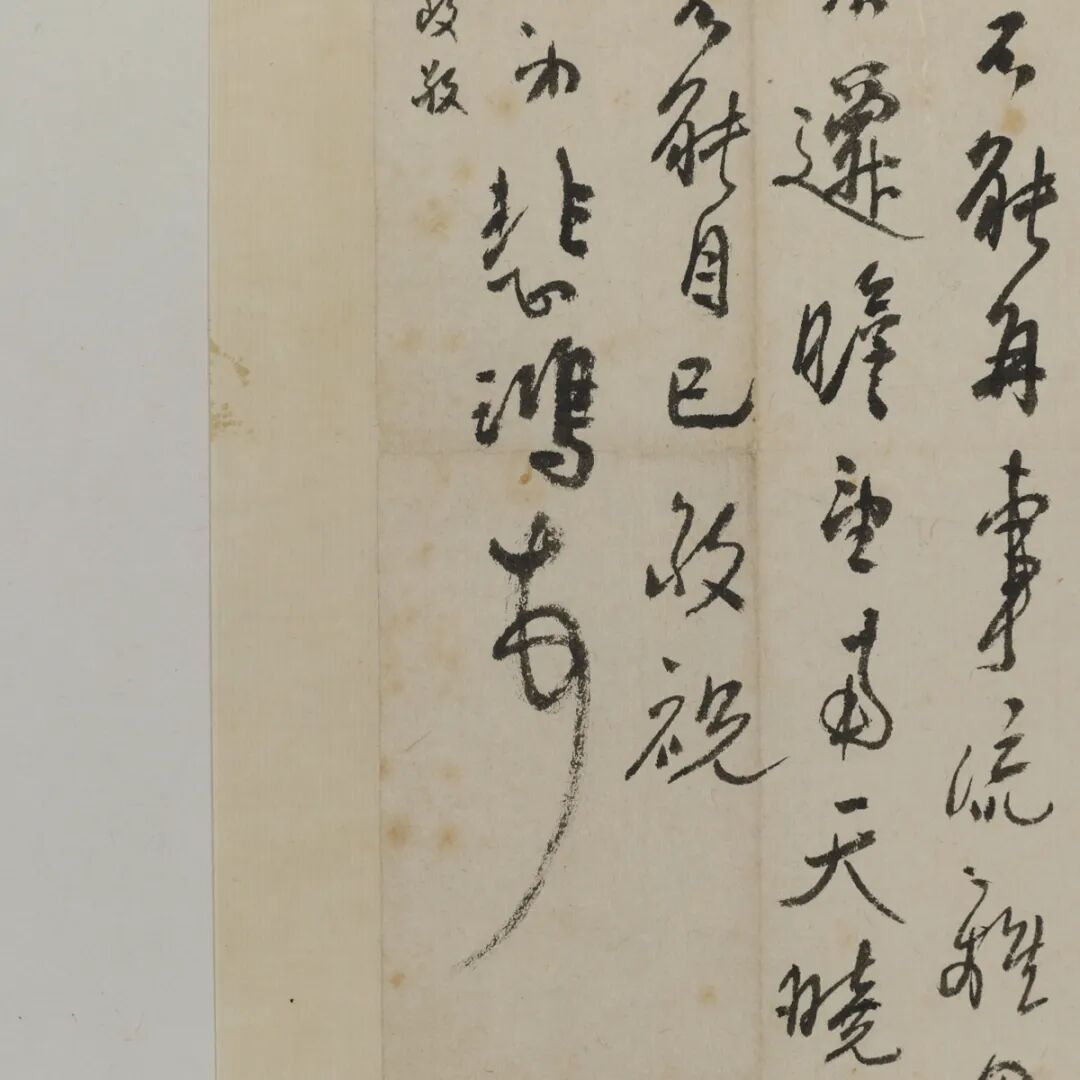 不能再事流離
遷瞻望南天曉
不能自已敬祝
弟悲鴻頓
敬